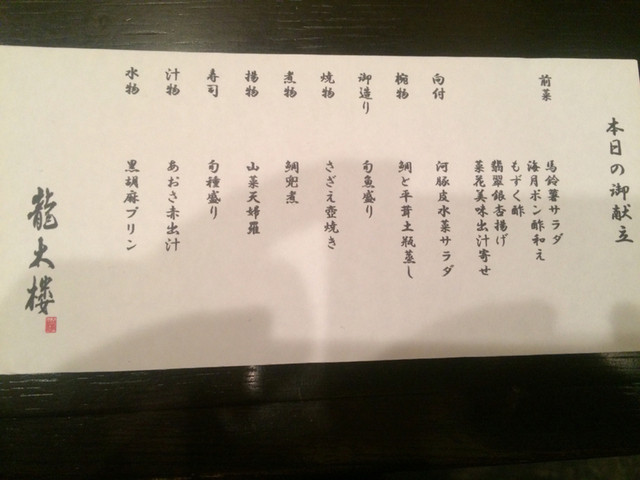 本日の御献立
前菜
馬鈴薯サラダ
海月ポン酢和え
もずく酢
翡翠銀杏揚げ
菜花美味出汁寄せ
向付
河豚皮水菜サラダ
椀物
鯛と平茸土瓶蒸し
御造り
旬魚盛り
焼物
さざえ壺焼き
煮物
鯛兜煮
揚物
山菜天婦羅
寿司
旬種盛り
汁物
あおさ赤出汁
水物
黒胡麻プリン
龍太楼